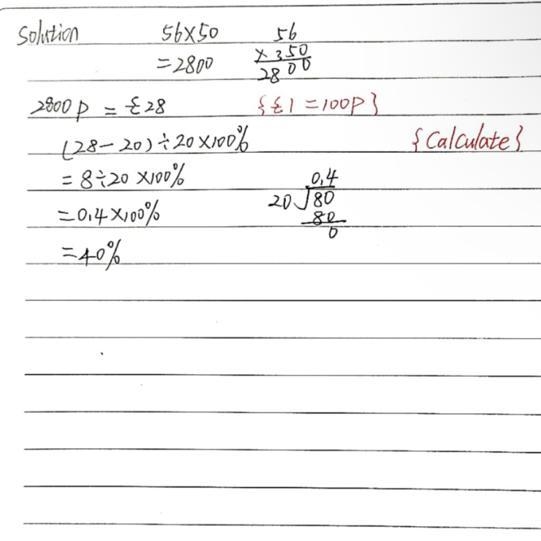 Solution 56×50 56
=2800 ×350
2800
2800p = £28 {£1 = 100p}
(28-20)÷20×100% {Calculate}
=8÷20×100% 0.4
=0.4×100% 20√80
80
0
=40%